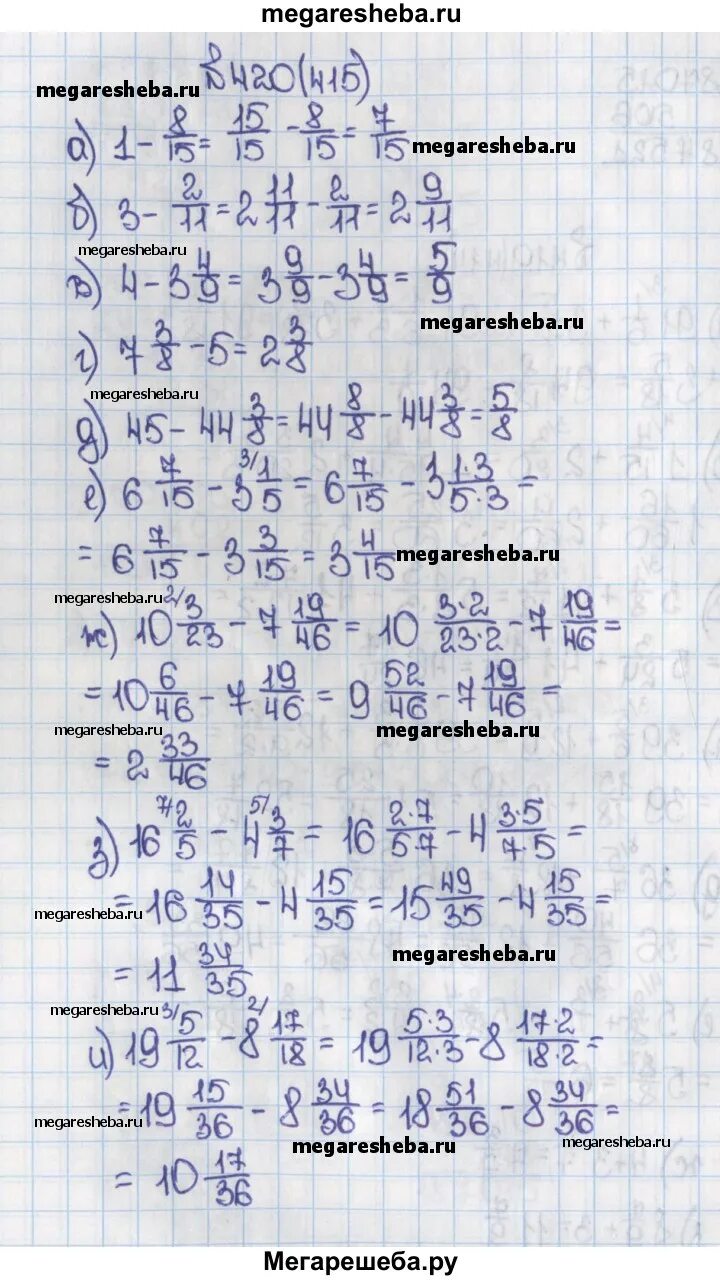 megaresheba.ru
№420(415)
megaresheba.ru
а) 1 - 8/15 = 15/15 - 8/15 = 7/15
megaresheba.ru
б) 3 - 2/11 = 2 11/11 - 2/11 = 2 9/11
megaresheba.ru
в) 4 - 3 4/9 = 3 9/9 - 3 4/9 = 5/9
megaresheba.ru
г) 7 3/8 - 5 = 2 3/8
megaresheba.ru
д) 45 - 44 3/8 = 44 8/8 - 44 3/8 = 5/8
е) 6 7/15 - 3 ³⁾1/5 = 6 7/15 - 3 1·3/5·3 =
= 6 7/15 - 3 3/15 = 3 4/15
megaresheba.ru
megaresheba.ru
ж) 10 ²⁾3/23 - 7 19/46 = 10 3·2/23·2 - 7 19/46 =
= 10 6/46 - 7 19/46 = 9 52/46 - 7 19/46 =
megaresheba.ru
megaresheba.ru
= 2 33/46
з) 16 ⁷⁾2/5 - 4 ⁵⁾3/7 = 16 2·7/5·7 - 4 3·5/7·5 =
= 16 14/35 - 4 15/35 = 15 49/35 - 4 15/35 =
megaresheba.ru
megaresheba.ru
= 11 34/35
megaresheba.ru
и) 19 ³⁾5/12 - 8 ²⁾17/18 = 19 5·3/12·3 - 8 17·2/18·2 =
= 19 15/36 - 8 34/36 = 18 51/36 - 8 34/36 =
megaresheba.ru
megaresheba.ru
megaresheba.ru
= 10 17/36
Мегарешеба.ру